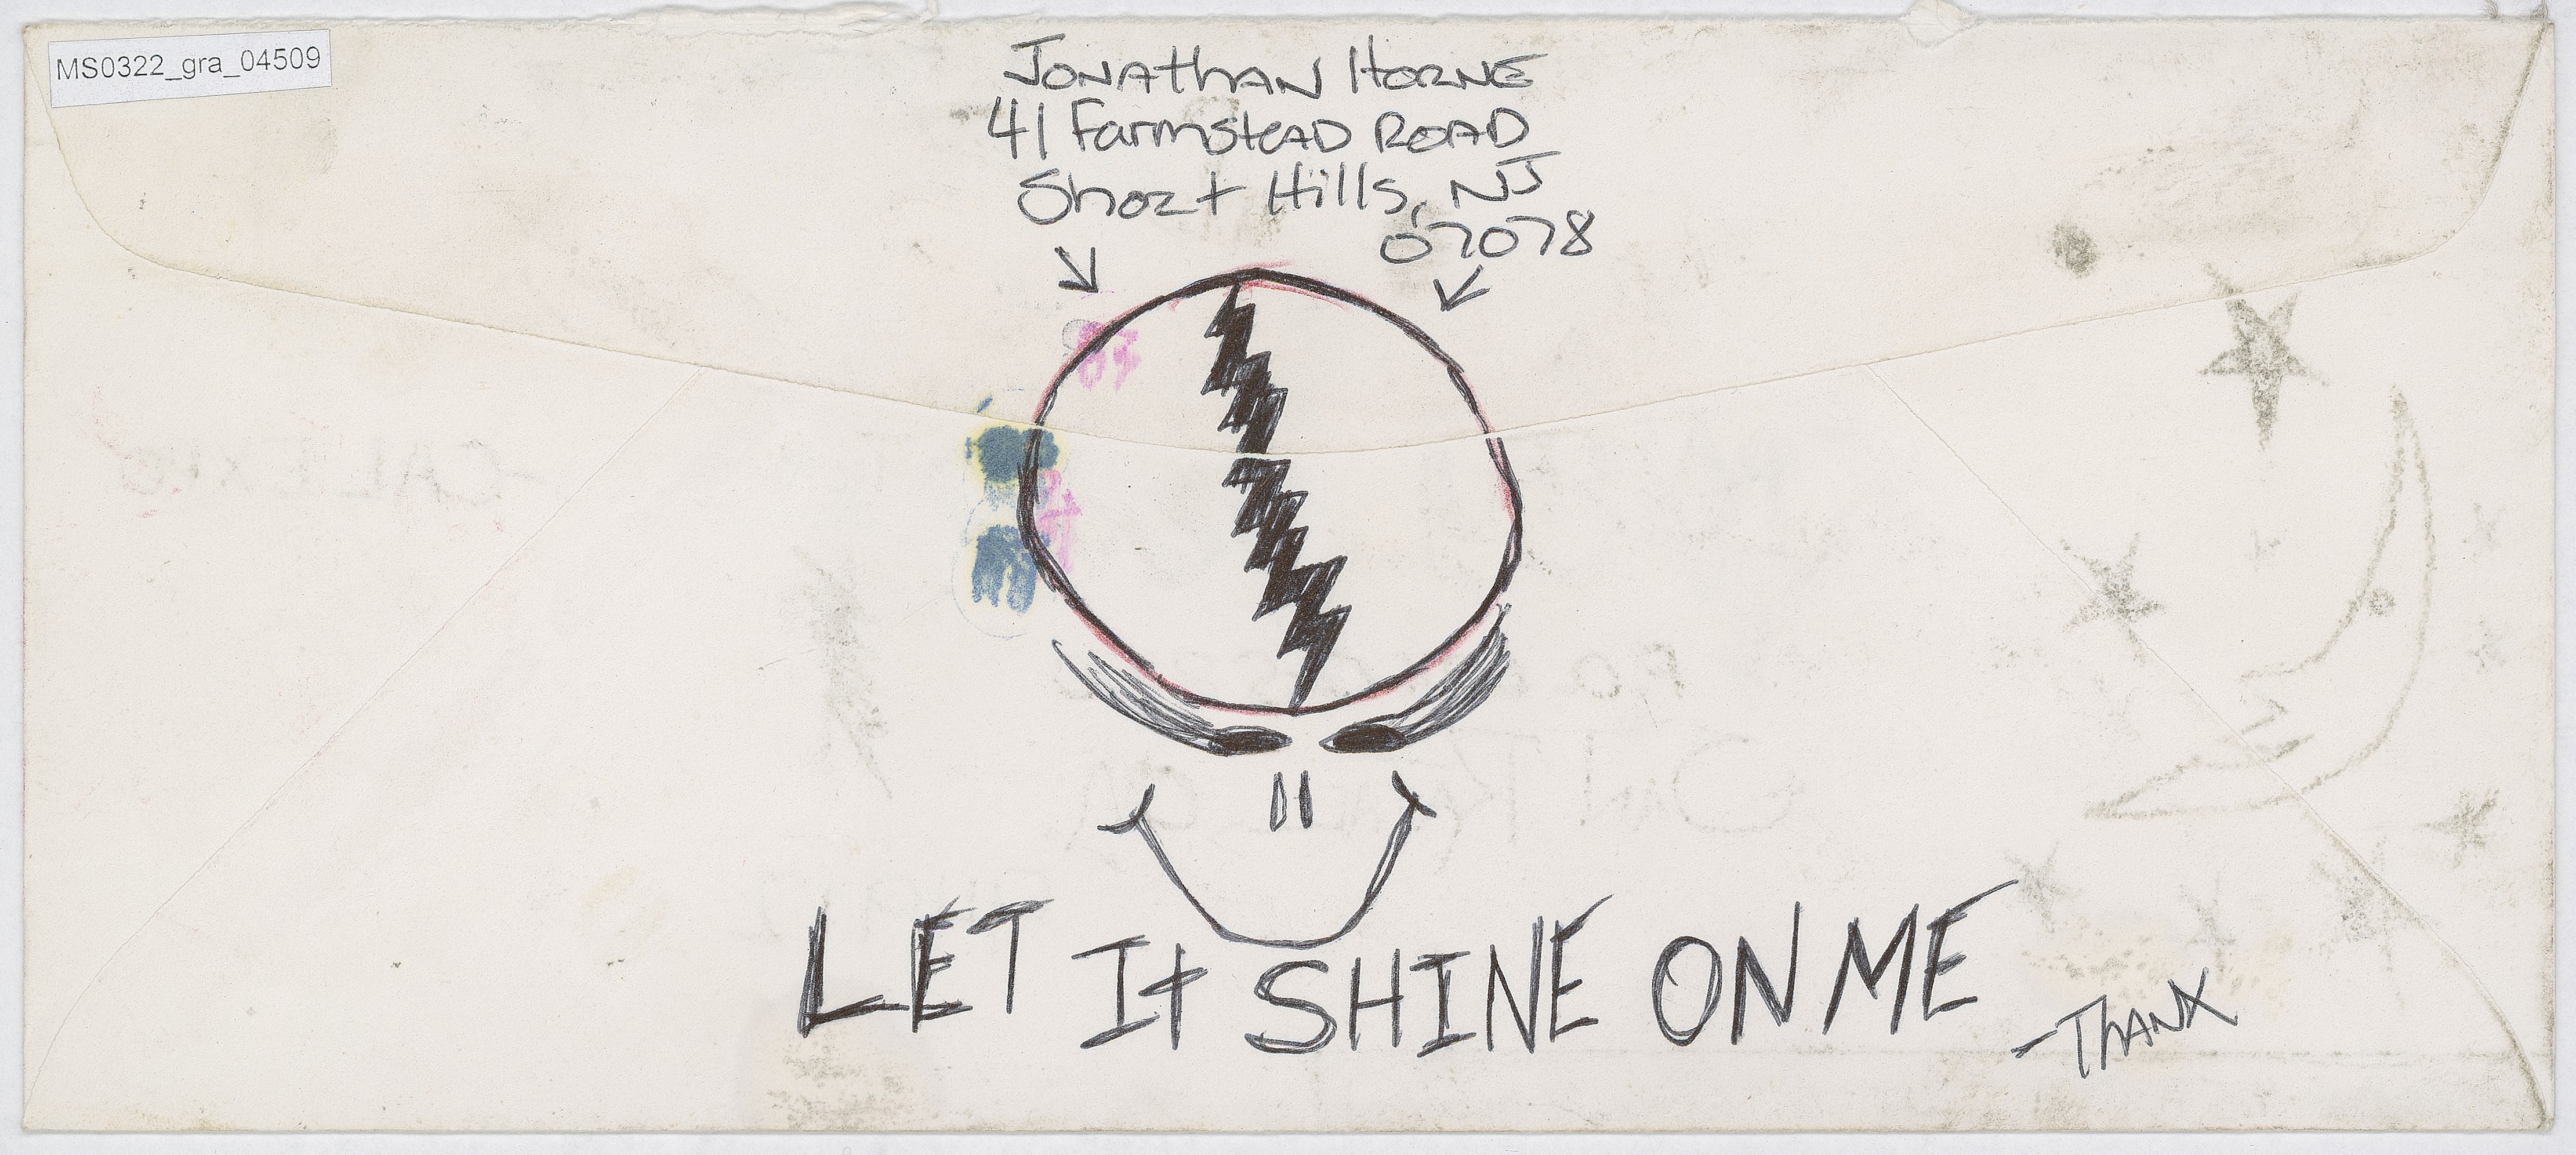 MS0322_gra_04509
JONAthAN HORNE
41 FarmsteAD ROAD
Short Hills, NJ
07078
LET It SHINE ON ME
-ThANX